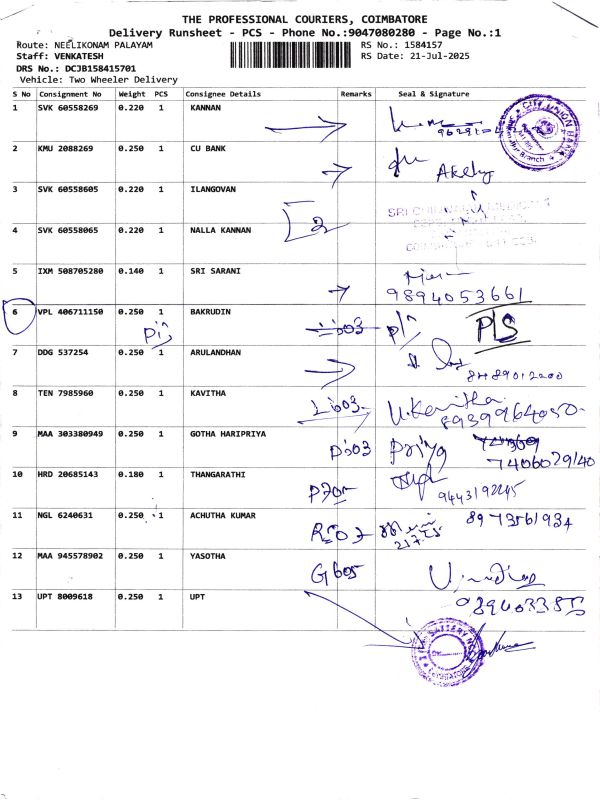 THE PROFESSIONAL COURIERS, COIMBATORE
Delivery Runsheet - PCS - Phone No.:9047080280 - Page No.:1
Route: NEELIKONAM PALAYAM
RS No.: 1584157
Staff: VENKATESH
RS Date: 21-Jul-2025
DRS No.: DCJB158415701
Vehicle: Two Wheeler Delivery
S No Consignment No Weight PCS Consignee Details Remarks Seal & Signature
1 SVK 60558269 0.220 1 KANNAN
CITY UNION BANK
Branch
2 KMU 2088269 0.250 1 CU BANK
3 SVK 60558605 0.220 1 ILANGOVAN
2
4 SVK 60558065 0.220 1 NALLA KANNAN
5 IXM 508705280 0.140 1 SRI SARANI
9894053661
6 VPL 406711150 0.250 1 BAKRUDIN
P/S
7 DDG 537254 0.250 1 ARULANDHAN
8 TEN 7985960 0.250 1 KAVITHA U.Kavitha
8939964050
9 MAA 303380949 0.250 1 GOTHA HARIPRIYA Priya
7406029140
10 HRD 20685143 0.180 1 THANGARATHI
11 NGL 6240631 0.250 1 ACHUTHA KUMAR
12 MAA 945578902 0.250 1 YASOTHA
13 UPT 8009618 0.250 1 UPT